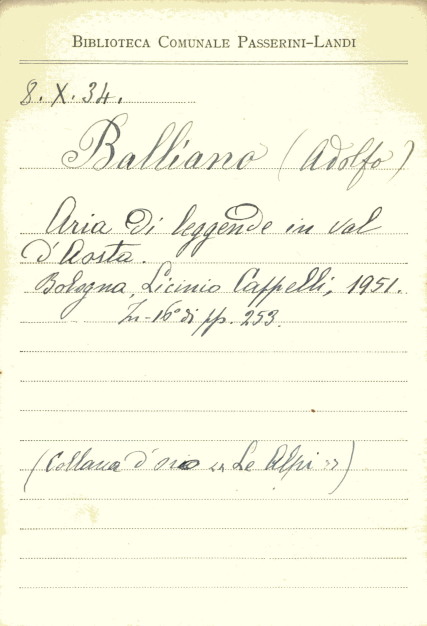 BIBLIOTECA COMUNALE PASSERINI-LANDI
8. X. 34.
Balliano (Adolfo)
Aria di leggende in val
d'Aosta.
Bologna, Licinio Cappelli, 1951.
In-16° di pp. 253.
(Collana d'oro « Le Alpi »)